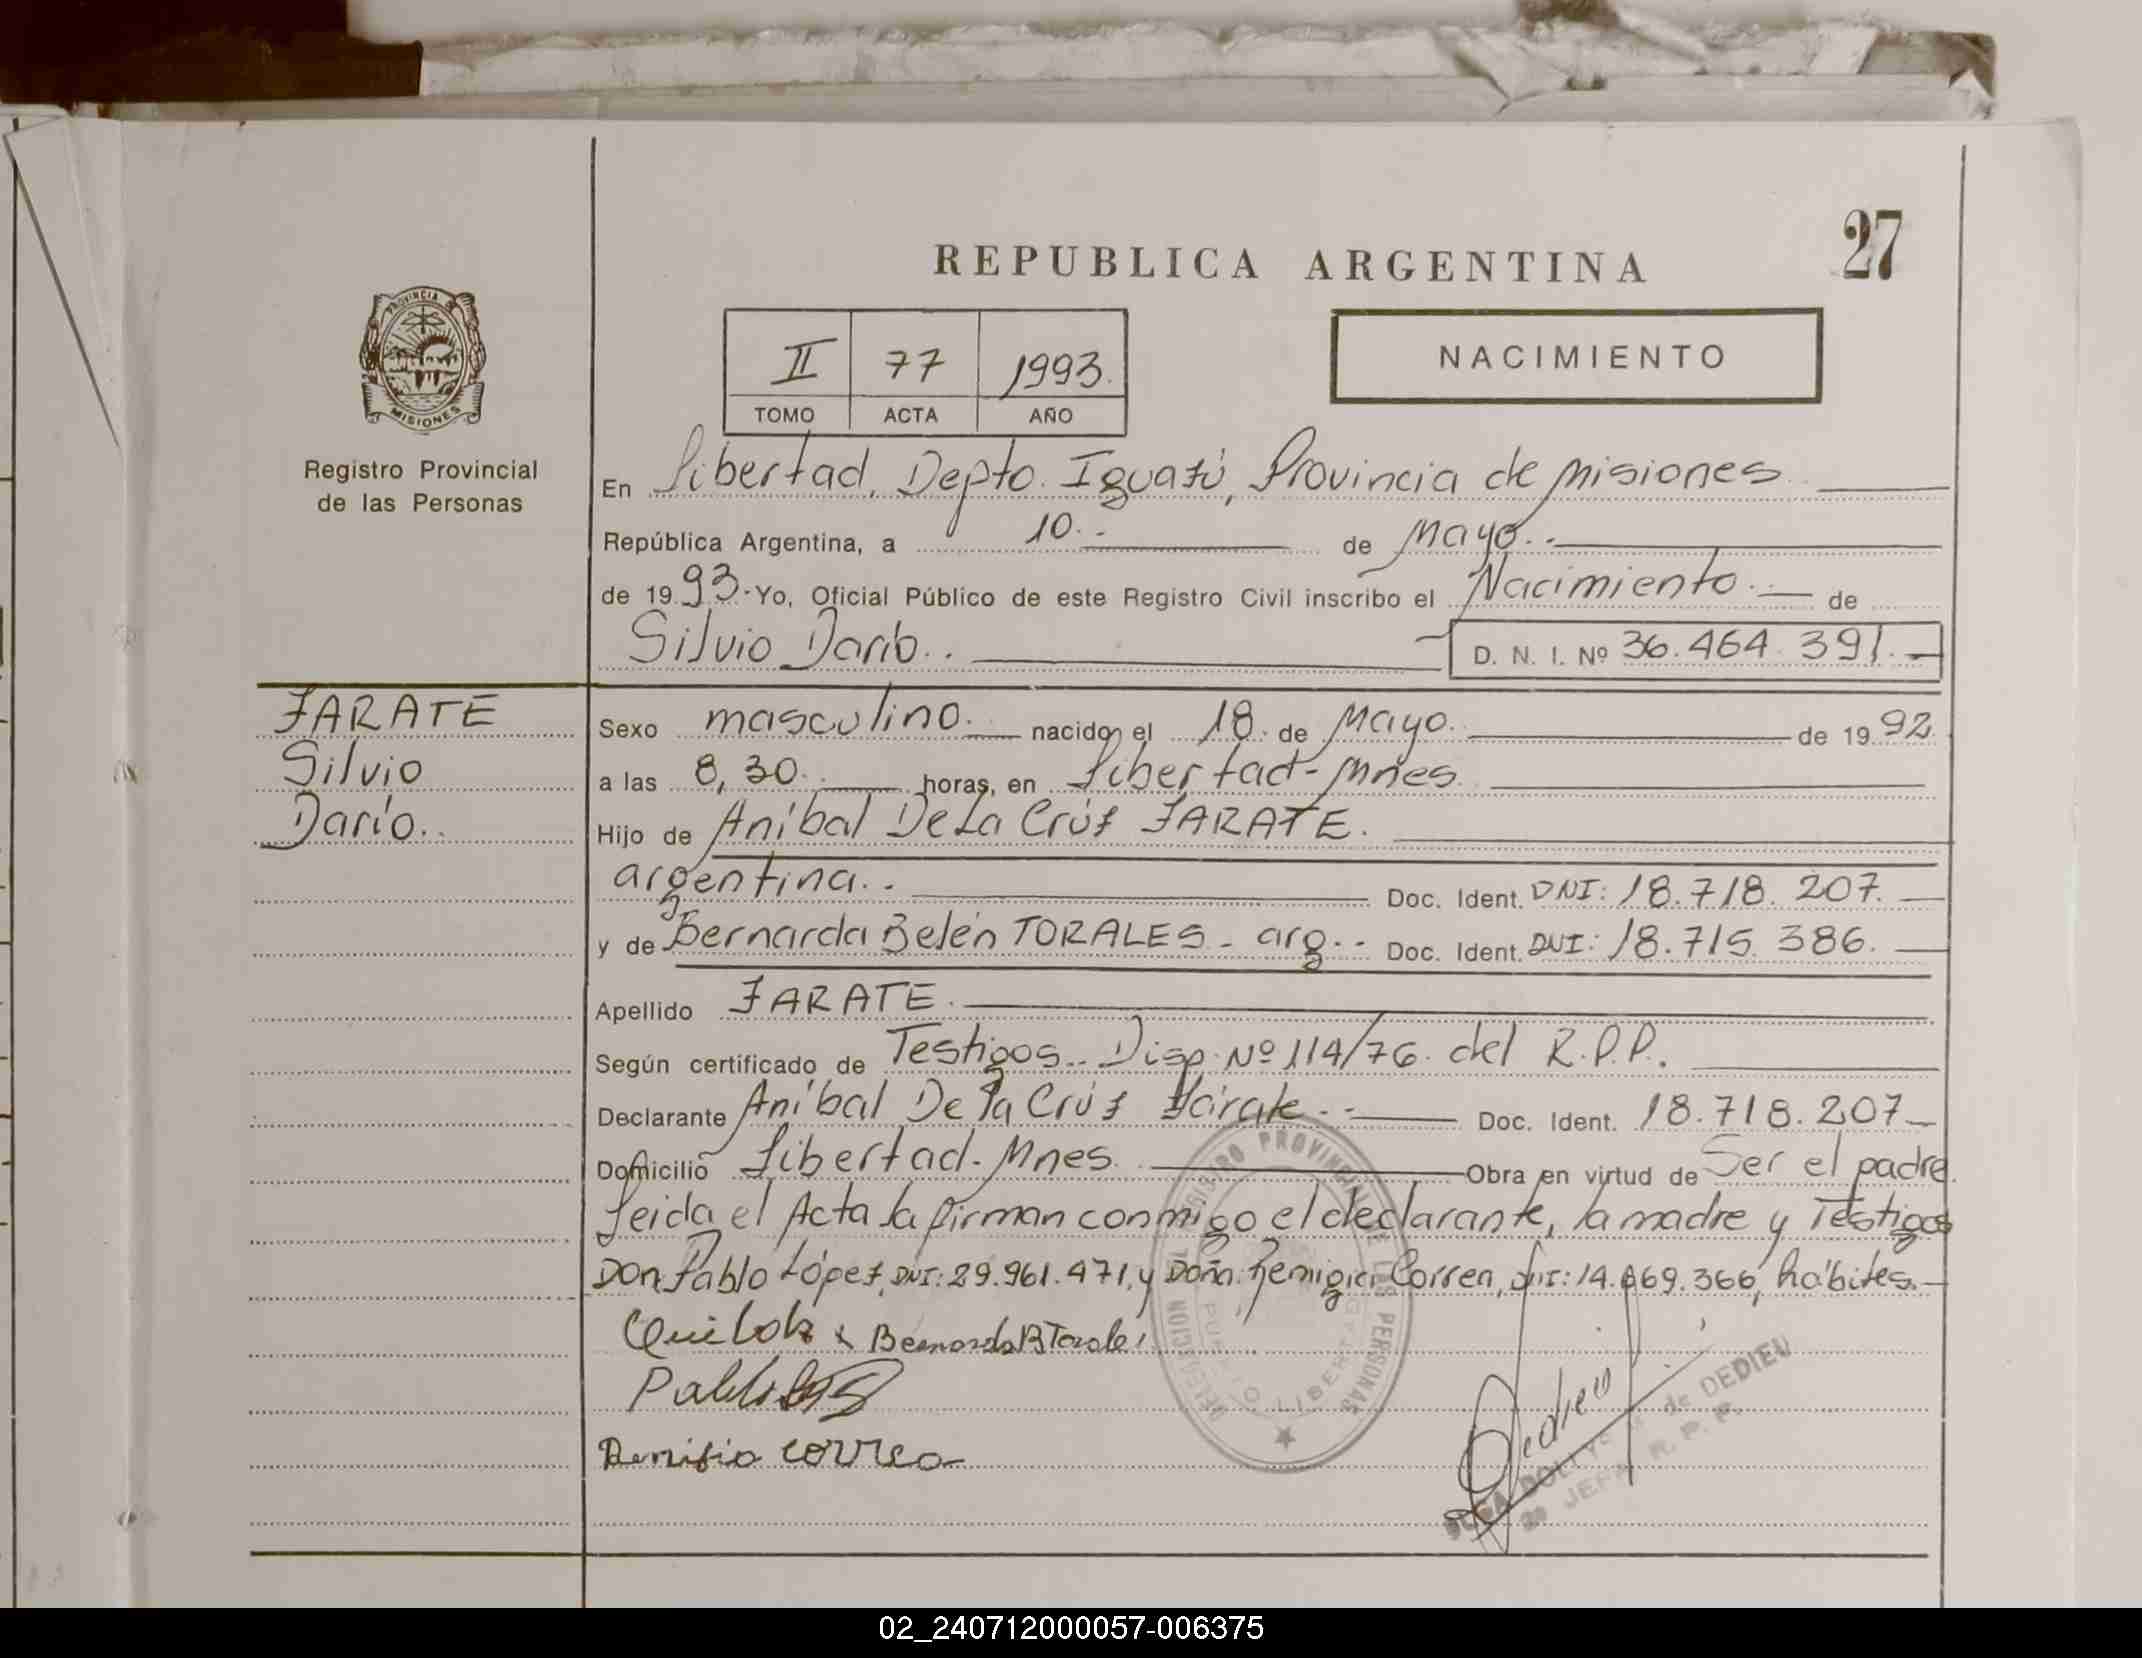 27
REPUBLICA ARGENTINA
PROVINCIA DE
MISIONES
II 77 1993.
TOMO ACTA AÑO
NACIMIENTO
Registro Provincial
de las Personas
En Libertad, Depto. Iguazú, Provincia de Misiones
República Argentina, a 10.- de Mayo.-
de 1993.- Yo, Oficial Público de este Registro Civil inscribo el Nacimiento.- de
Silvio Darío.. D. N. I. Nº 36.464.391.-
ZARATE
Silvio
Darío..
Sexo masculino. nacido el 18. de Mayo. de 1992
a las 8,30.. horas, en Libertad-Mnes.
Hijo de Aníbal De La Crúz ZARATE.
argentina.. Doc. Ident. DNI: 18.718.207.
y de Bernarda Belén TORALES - arg.. Doc. Ident. DNI: 18.715.386.
Apellido ZARATE.
Según certificado de Testigos.. Disp. Nº 114/76. del R.P.P.
Declarante Aníbal De La Crúz Zárate.. Doc. Ident. 18.718.207
Domicilio Libertad-Mnes. Obra en virtud de Ser el padre.
Leida el Acta la firman conmigo el declarante, la madre y Testigos
Don Pablo López, DNI: 29.961.471, y Doña Remigia Correa, DNI: 14.069.366, hábiles.-
Bernarda B Torales
Pablo
Remisia correa
DELEGACION DEL REGISTRO PROVINCIAL DE LAS PERSONAS
PUERTO LIBERTAD
Dedieu
de DEDIEU
JEFA R. P. P.
02_240712000057-006375